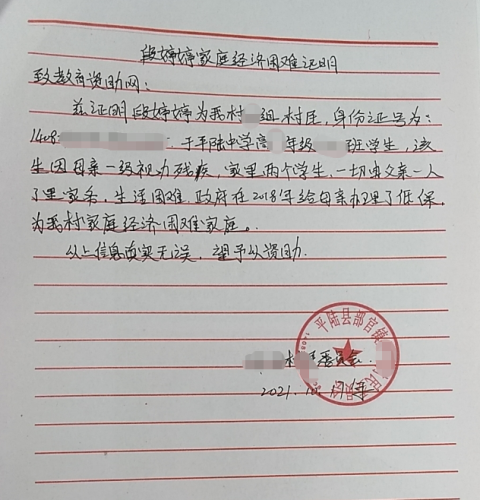 段婷婷家庭经济困难证明
致教育资助网:
兹证明段婷婷为我村 组村民,身份证号为:
1408 ,于平陆中学高 年级 班学生,该
生因母亲一级视力残疾,家里两个学生,一切由父亲一人
了里家务,生活困难,政府在2018年给母亲办理了低保,
为我村家庭经济困难家庭。
以上信息真实无误,望予以资助.
村 委员会.
2021.
平陆县部官镇